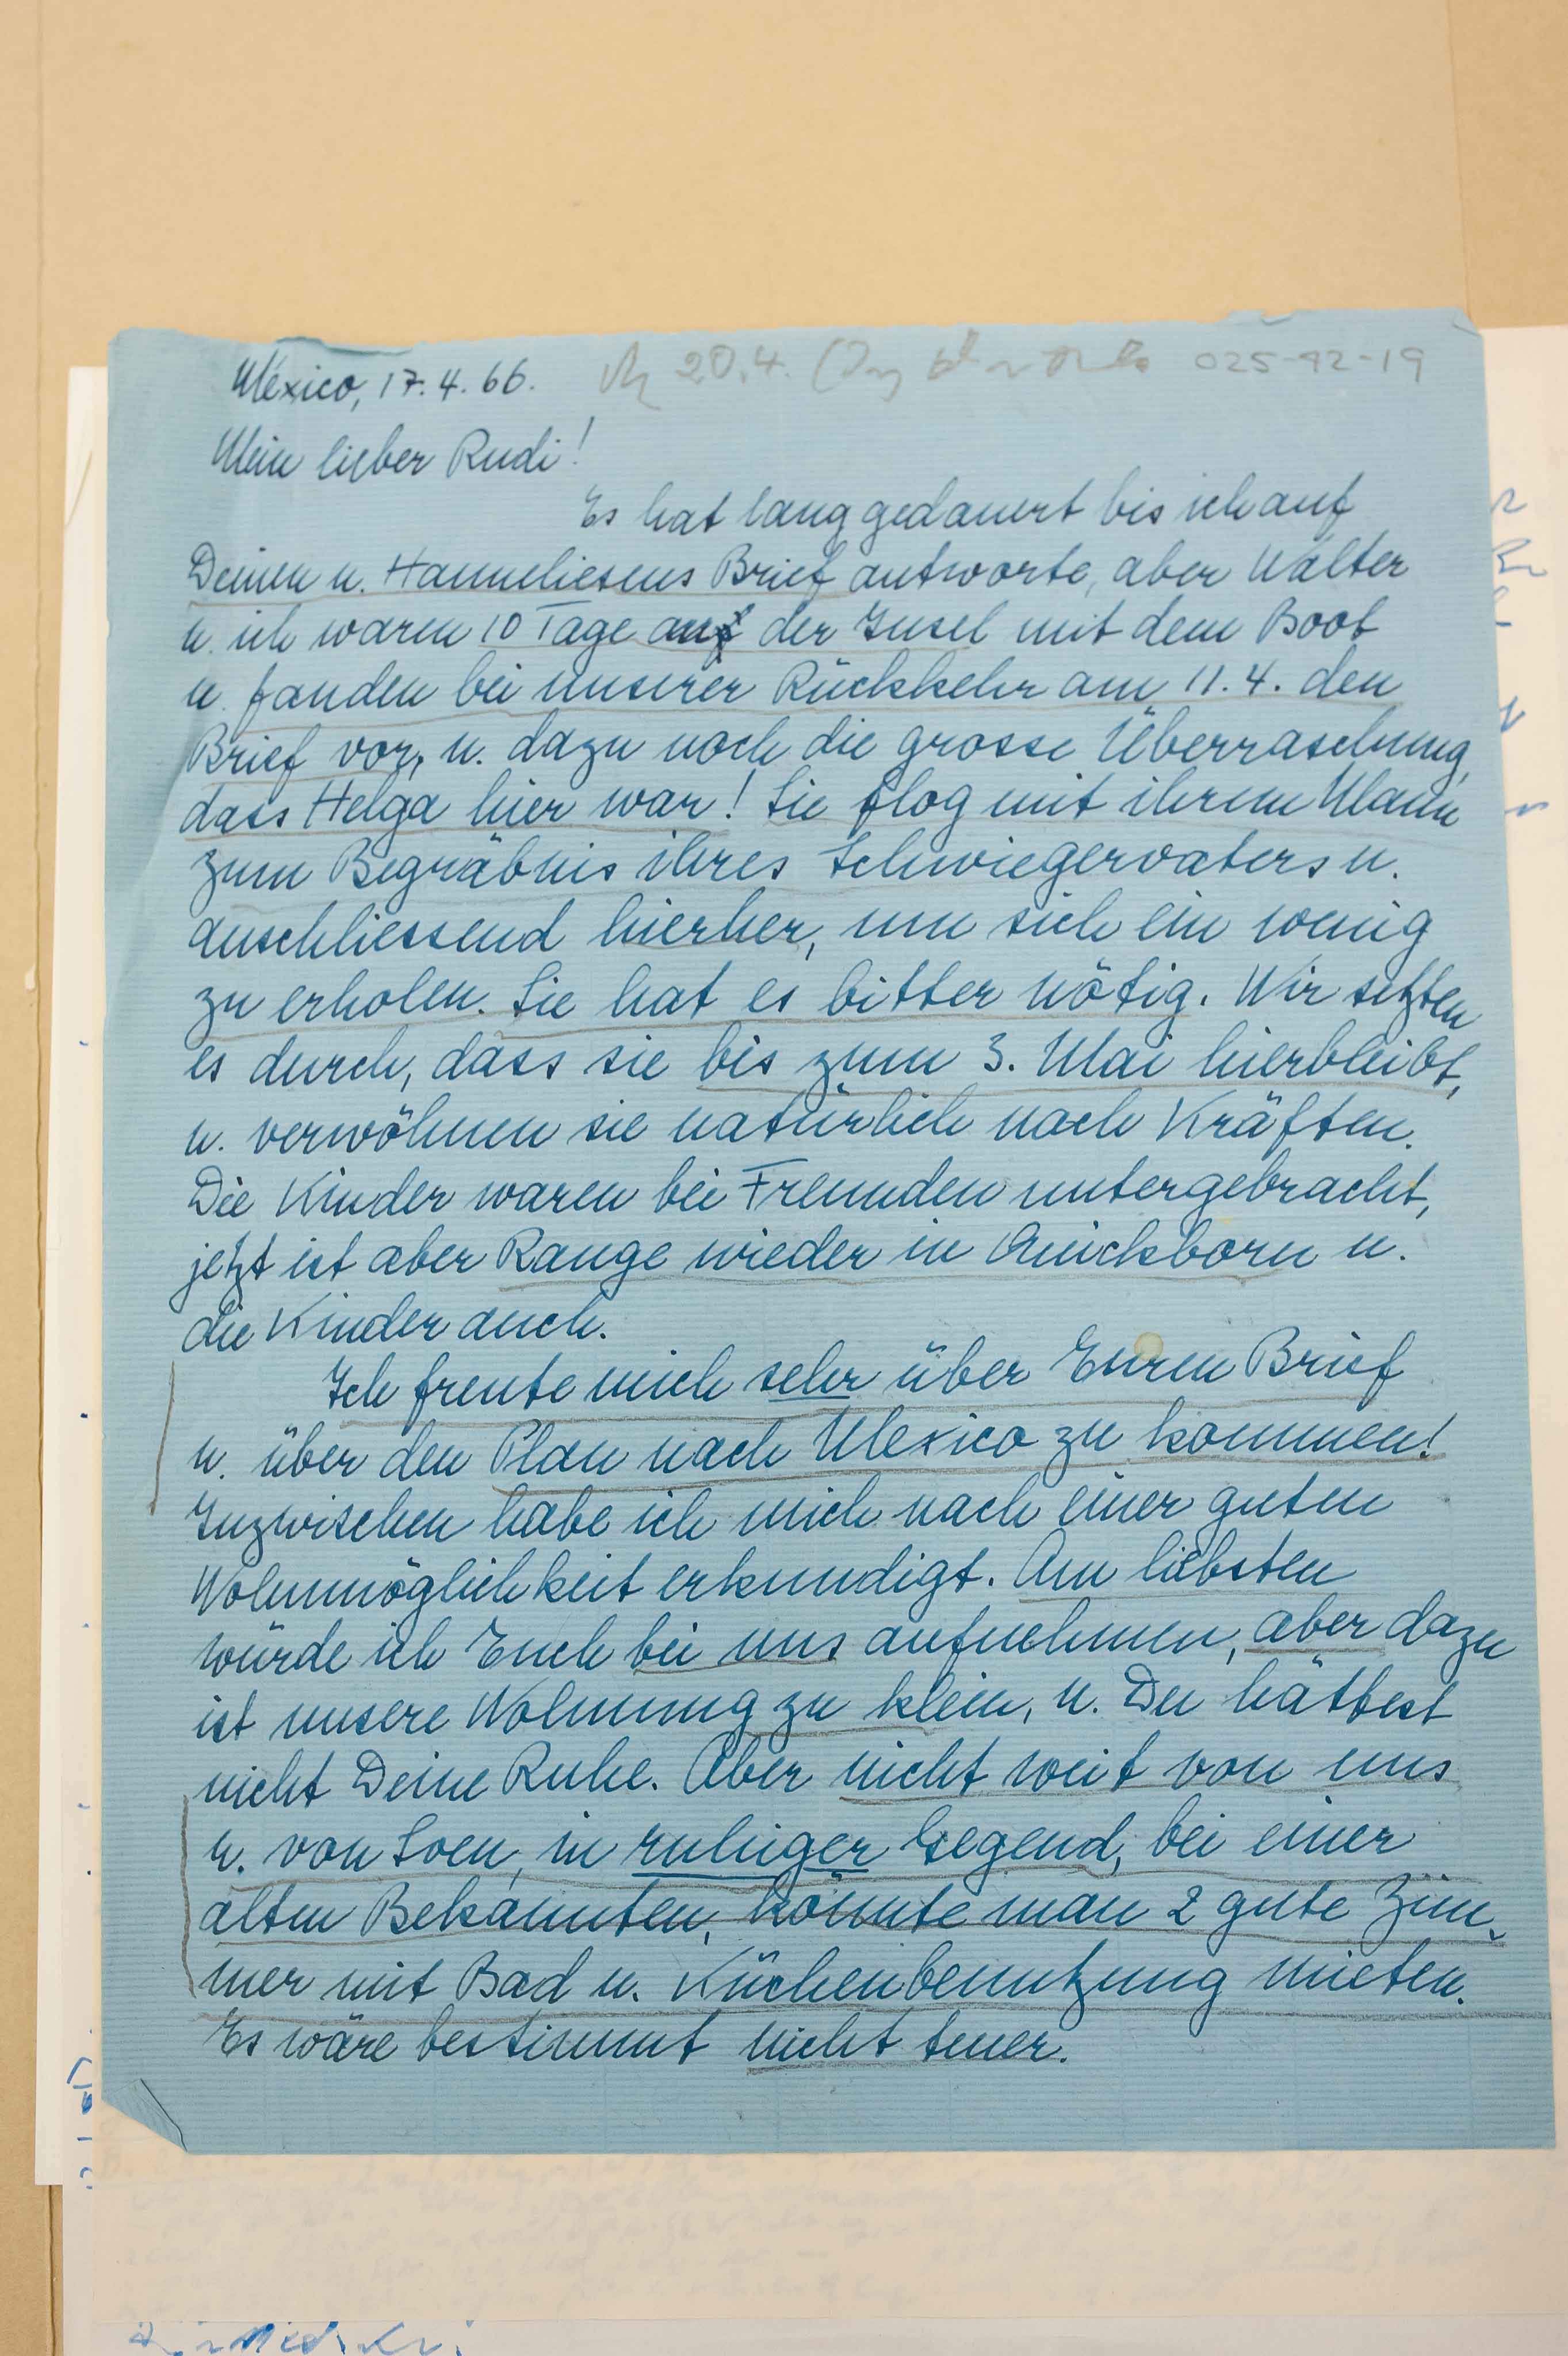 México, 17.4.66. 20.4. 025-92-19
Mein lieber Rudi!
Es hat lang gedauert bis ich auf
Deinen u. Hanneliesens Brief antworte, aber Walter
u. ich waren 10 Tage auf der Insel mit dem Boot
u. fanden bei unserer Rückkehr am 11.4. den
Brief vor, u. dazu noch die grosse Überraschung,
dass Helga hier war! Sie flog mit ihrem Mann
zum Begräbnis ihres Schwiegervaters u.
anschliessend hierher, um sich ein wenig
zu erholen. Sie hat es bitter nötig. Wir setzten
es durch, dass sie bis zum 3. Mai hierbleibt,
u. verwöhnen sie natürlich nach Kräften.
Die Kinder waren bei Freunden untergebracht,
jetzt ist aber Range wieder in Quickborn u.
die Kinder auch.
Ich freute mich sehr über Euren Brief
u. über den Plan nach Mexico zu kommen!
Inzwischen habe ich mich nach einer guten
Wohnmöglichkeit erkundigt. Am liebsten
würde ich Euch bei uns aufnehmen, aber dazu
ist unsere Wohnung zu klein, u. Du hättest
nicht Deine Ruhe. Aber nicht weit von uns
u. von Soen, in ruhiger Gegend, bei einer
alten Bekannten, könnte man 2 gute Zim-
mer mit Bad u. Küchenbenutzung mieten.
Es wäre bestimmt nicht teuer.